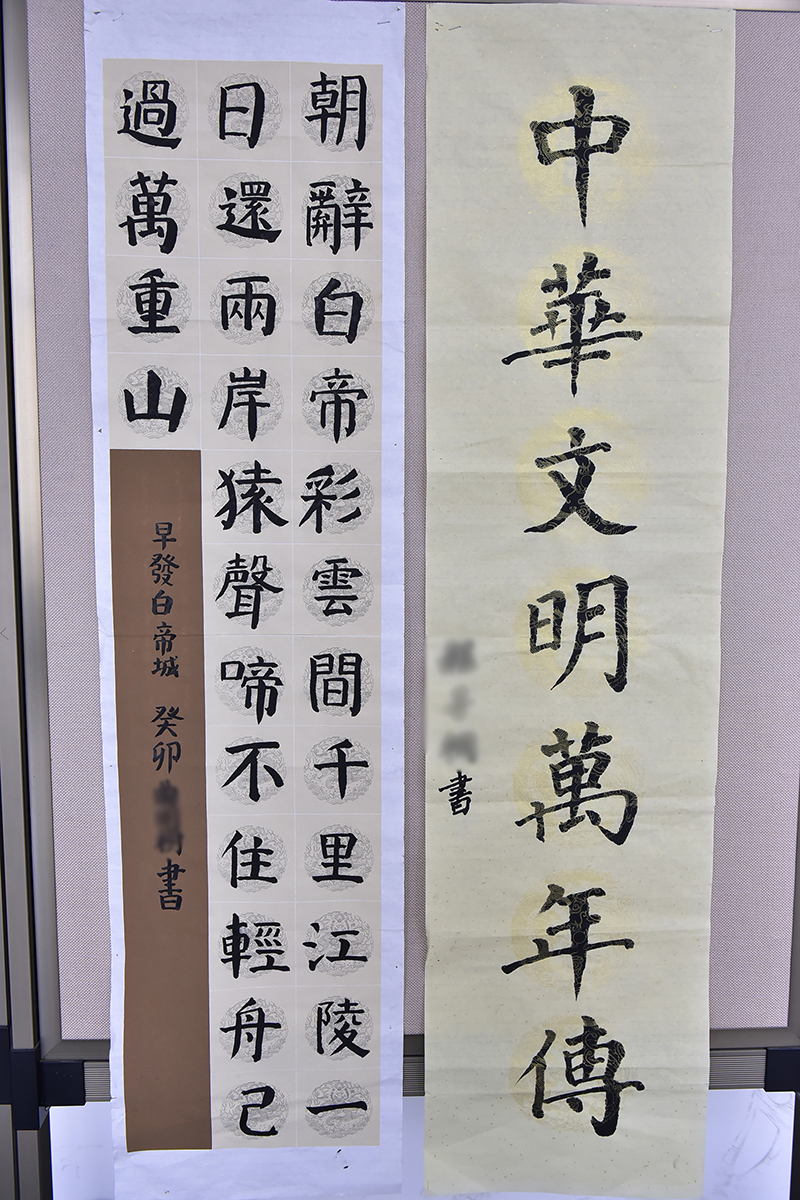 中華文明萬年傳
書
朝辭白帝彩雲間千里江陵一
日還兩岸猿聲啼不住輕舟已
過萬重山
早發白帝城 癸卯 書